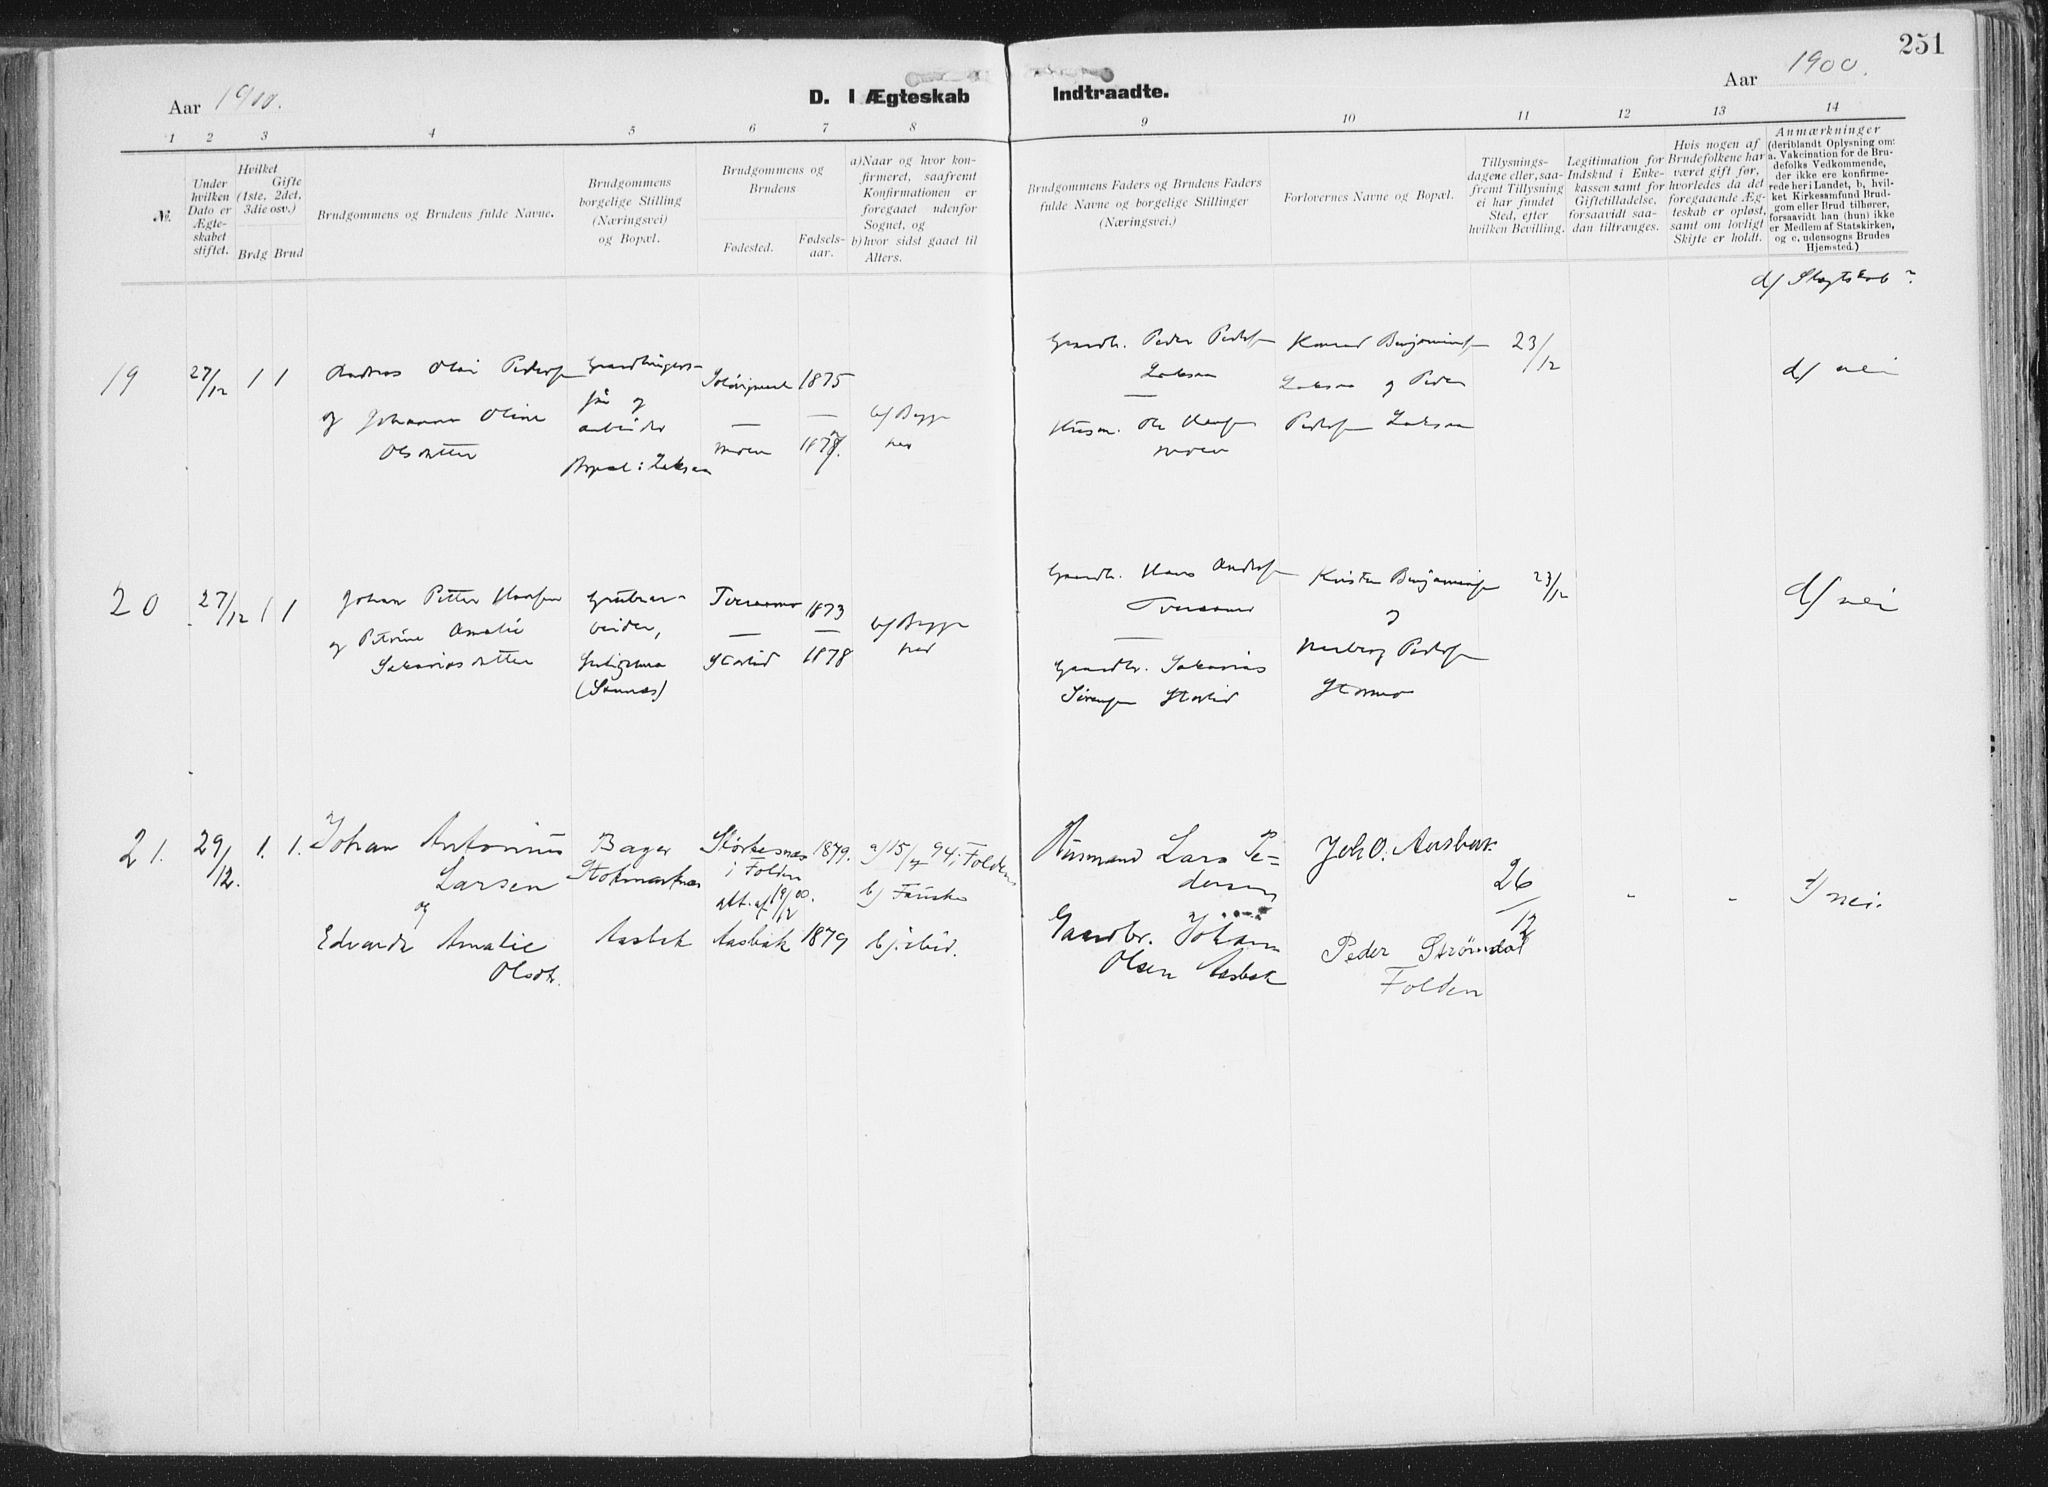 251
Aar 1900.
D. I Ægteskab Indtraadte.
Aar 1900.
1 2 3 4 5 6 7 8 9 10 11 12 13 14
№.
Under
hvilken
Dato er
Ægte-
skabet
stiftet.
Hvilket
Gifte
(1ste, 2det,
3die osv.)
Brdg Brud
Brudgommens og Brudens fulde Navne.
Brudgommens
borgelige Stilling
(Næringsvei)
og Bopæl.
Brudgommens og
Brudens
Fødested.
Fødsels-
aar.
a) Naar og hvor kon-
firmeret, saafremt
Konfirmationen er
foregaaet udenfor
Sognet, og
b) hvor sidst gaaet til
Alters.
Brudgommens Faders og Brudens Faders
fulde Navne og borgelige Stillinger
(Næringsvei.)
Forlovernes Navne og Bopæl.
Tillysnings-
dagene eller, saa-
fremt Tillysning
ei har fundet
Sted, efter
hvilken Bevilling.
Legitimation for
Indskud i Enke-
kassen samt for
Giftetilladelse,
forsaavidt saa-
dan tiltrænges.
Hvis nogen af
Brudefolkene har
været gift før,
hvorledes da det
foregaaende Æg-
teskab er opløst,
samt om lovligt
Skifte er holdt.
Anmærkninger
(deriblandt Oplysning om:
a. Vakcination for de Bru-
defolks Vedkommende,
der ikke ere konfirme-
rede her i Landet, b, hvil-
ket Kirkesamfund Brud-
gom eller Brud tilhører,
forsaavidt han (hun) ikke
er Medlem af Statskirken,
og c, udensogns Brudes
Hjemsted.)
d/ Slægtskab?
19
27/12
1 1
Andreas Olai Pedersen
og Johanna Oline
Olsdatter
søn og
arbeider
Bopæl: Laksaa
1875
—
Moen 1878
b/ Begge
her
Gaardbr. Peder Pedersen
Laksaa
—
Husm. Ole Hansen
Moen
Konrad Benjaminsen
Laksaa og Peder
Pedersen Laksaa
23/12
d/ nei
20
27/12
1 1
Johan Petter Hansen
og Petrine Amalie
Sakariasdatter
Grubear-
beider,
Sulitjelma
Tveraamo 1873
— —
Storlid 1878
b/ Begge
her
Gaardbr. Hans Andersen
Tveraamo
—
Gaardbr. Sakarias
Sørensen Storlid
Kristen Benjaminsen
og
Pedersen
Stormo
23/12
d/ nei
21.
29/12.
1. 1.
Johan Antonius
Larsen
og
Edvarda Amalie
Olsdtr.
Bager
Stokmarknes
Aasbak
Størkesnæs
i Folden
att. af 19/12 00.
1879.
Aasbak 1879
a/ 15/7 94 i Folden
b/ Fauske
b/ ibid.
Husmand Lars Pe-
dersen
Gaardbr. Johan
Olsen Aasbak
Joh O. Aasbak
Peder Strømdal
Folden
26/12
" "
d/ nei.